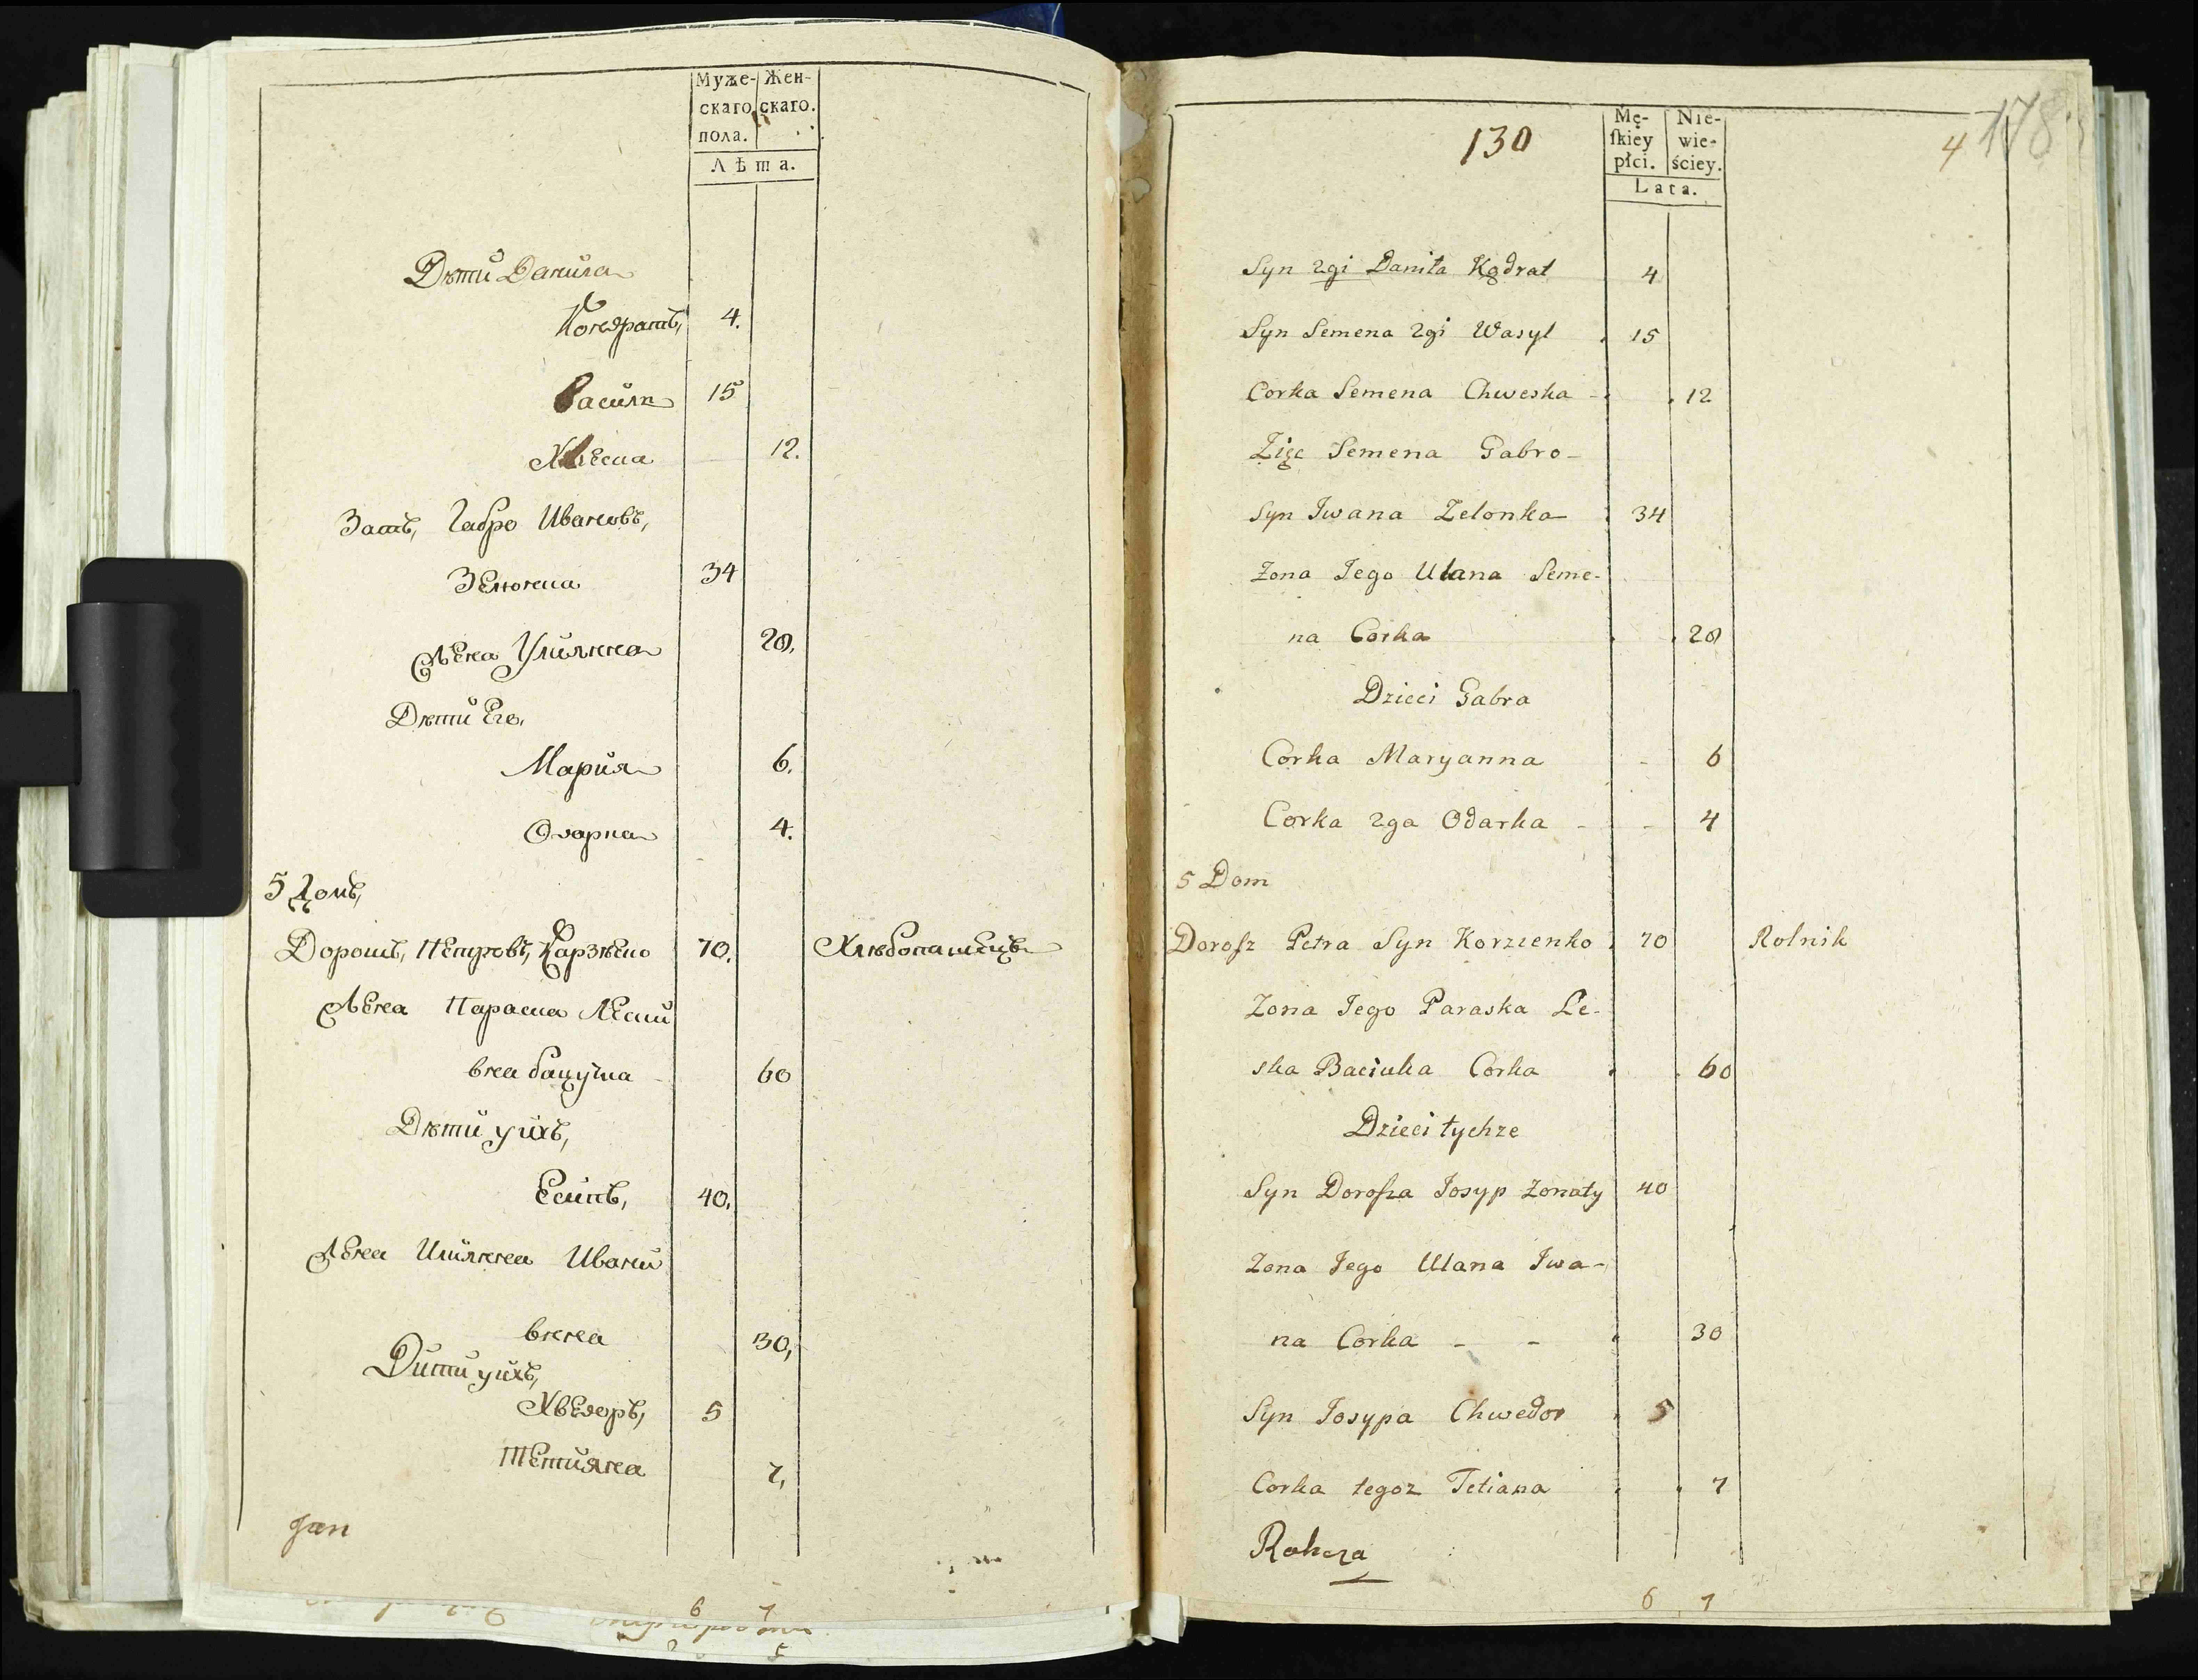 Муже-
скаго
пола.
Жен-
скаго.
Лѣта.
Дѣти Данила
Кондратъ, 4.
Василь 15
Хвеска 12.
Зать, Габро Ивановъ,
Зелонка 34
Жена Улиянна 20.
Дѣти Его,
Мария 6.
Одарка 4.
5 Домъ,
Дорошъ, Петровъ, Карзѣнко 70. Хлѣбопашецъ
Жена Параска Леский
вна бацушка 60
Дѣти у ихъ,
Есипъ, 40.
Жена Улиянна Ивани
внна 30,
Дити у ихъ,
Хведоръ, 5
Тетияна 7,
Jan
130
4 178
Mę-
ſkiey
płci.
Nie-
wie-
ściey.
Lata.
Syn 2gi Daniła Kądrat 4
Syn Semena 2gi Wasyl 15
Corka Semena Chweska 12
Zięc Semena Gabro-
Syn Iwana Zelonka 34
Zona Jego Ulana Seme-
na Corka 20
Dzieci Gabra
Corka Maryanna - 6
Corka 2ga Odarka - - 4
5 Dom
Dorosz Petra Syn Korzienko 70 Rolnik
Zona Jego Paraska Le-
ska Baciuka Corka 60
Dzieci tychze
Syn Dorosza Josyp Zonaty 40
Zona Jego Ulana Iwa-
na Corka - - 30
Syn Josypa Chwedor 5
Corka tegoz Tetiana 7
Rohoza
6 7
6 7